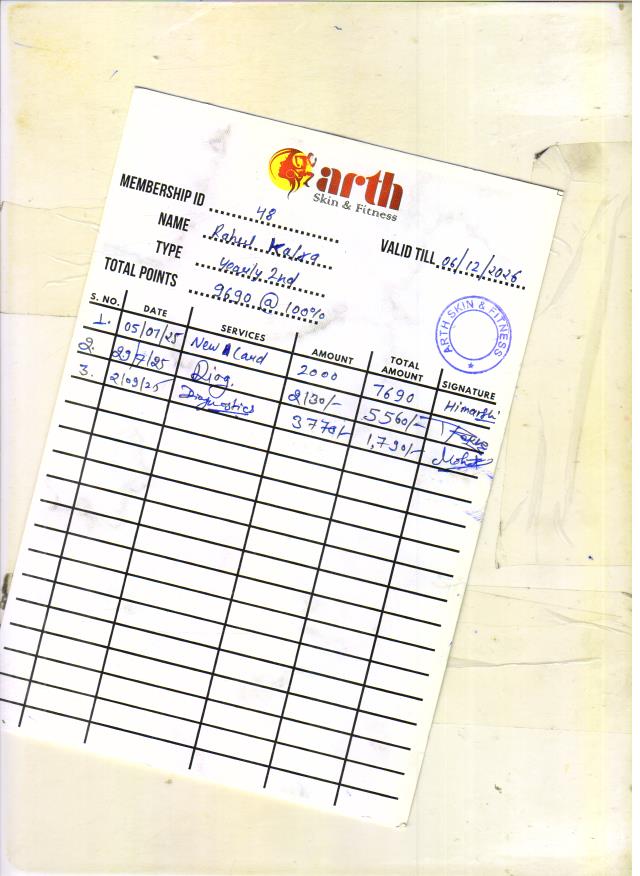 arth
Skin & Fitness
MEMBERSHIP ID 48
NAME Rahul Kalra
VALID TILL 06/12/2026
TYPE Yearly 2nd
TOTAL POINTS 9690 @ 100%
ARTH SKIN & FITNESS
S. NO. DATE SERVICES AMOUNT TOTAL AMOUNT SIGNATURE
1. 05/07/25 New Card 2000 7690 Himanshi
2. 29/7/25 Diag. 2130/- 5560/-
3. 2/09/25 Diagnostics 3770/- 1,790/- Mohit